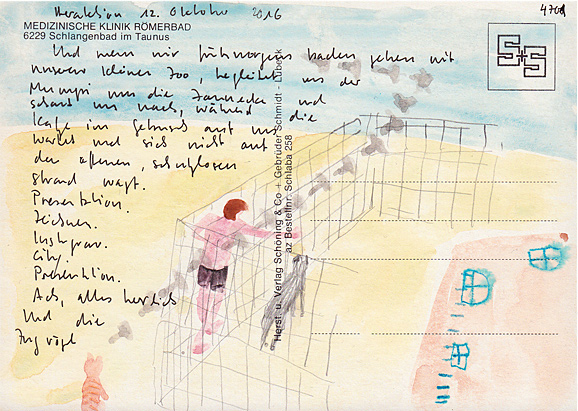 Heraklion 12. Oktober 2016
MEDIZINISCHE KLINIK RÖMERBAD
6229 Schlangenbad im Taunus
Und wenn wir frühmorgens baden gehen mit
unserem kleinen Zoo, begleitet uns der
um die und
schaut uns nach, während die
Katze im Gebüsch auf uns
wartet und sich nicht auf
den offenen, schutzlosen
Strand wagt.
Presentation.
Zeichnen.
City.
Presentation.
Ach, alles herrlich
Und die
Zugvögel
Herst. u. Verlag Schöning & Co + Gebrüder Schmidt - Lübeck
az Bestellnr. Schlaba 258
S+S